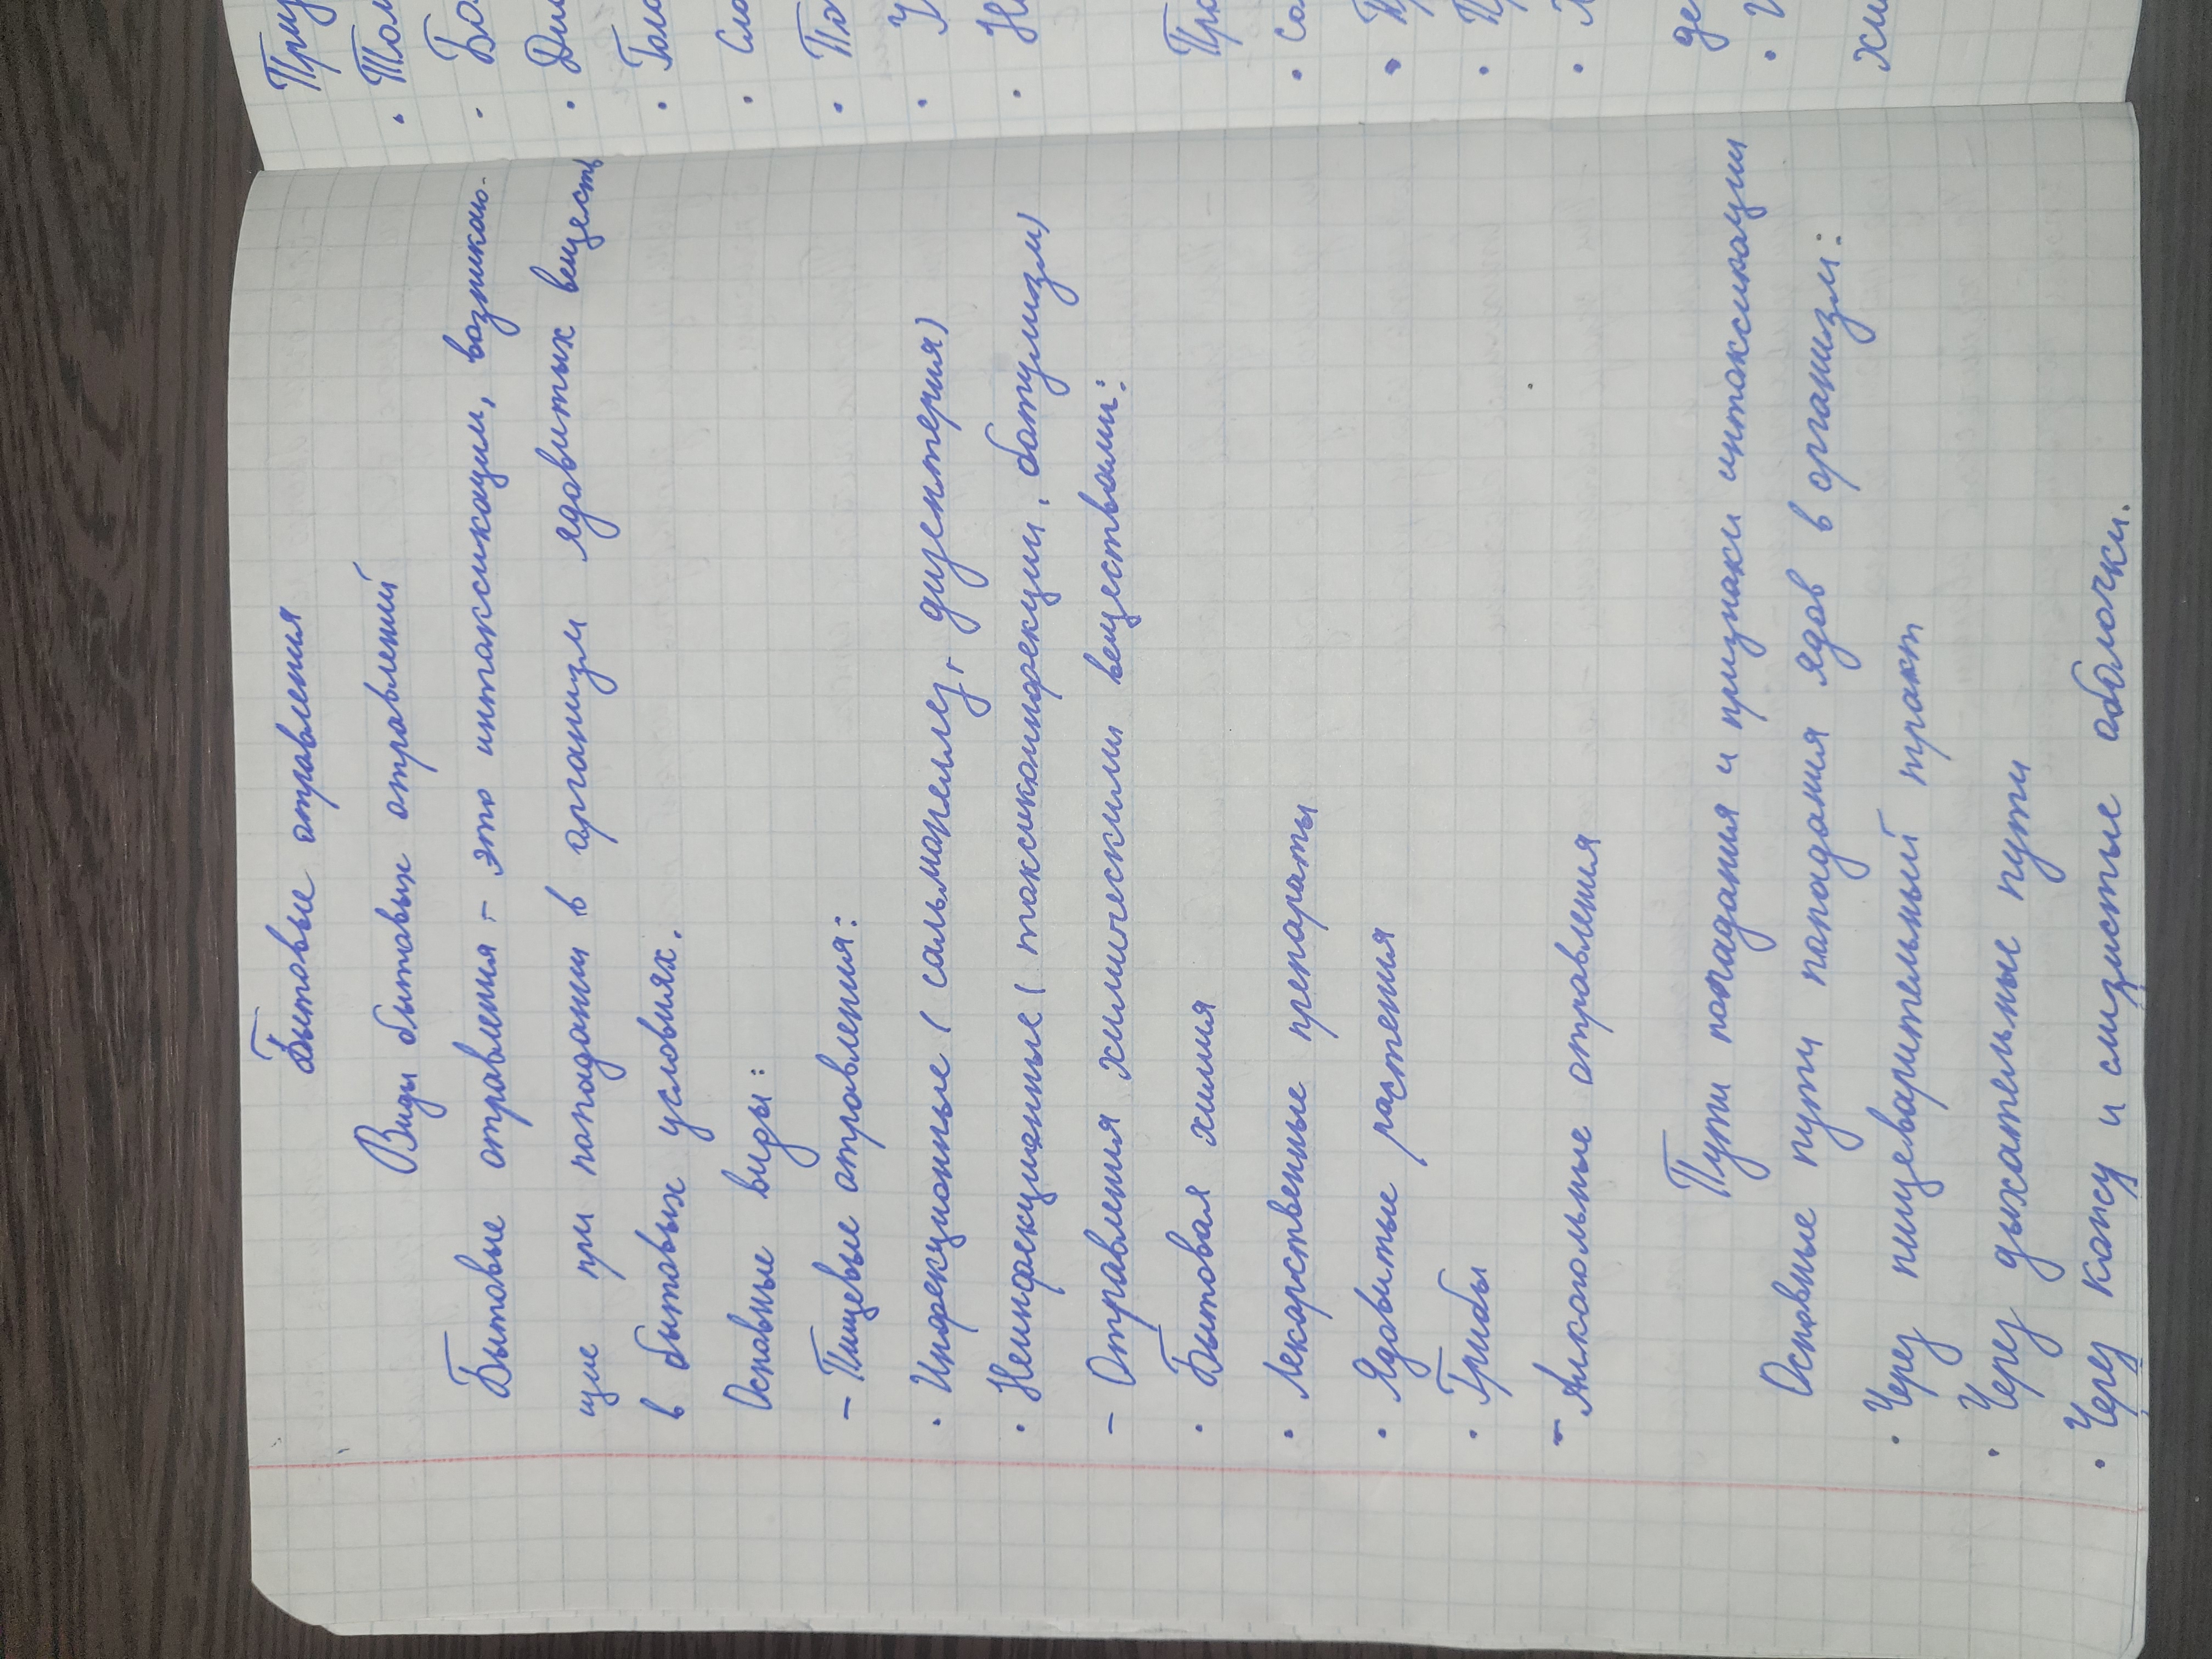 Бытовые отравления
Виды бытовых отравлений
Бытовые отравления - это интоксикации, возникаю-
щие при попадании в организм ядовитых веществ
в бытовых условиях.
Основные виды:
- Пищевые отравления:
• Инфекционные (сальмонеллез, дизентерия)
• Неинфекционные (токсикоинфекции, ботулизм)
- Отравления химическими веществами:
• Бытовая химия
• Лекарственные препараты
• Ядовитые растения
• Грибы
- Алкогольные отравления
Пути попадания и признаки интоксикации
Основные пути попадания ядов в организм:
• Через пищеварительный тракт
• Через дыхательные пути
• Через кожу и слизистые оболочки.